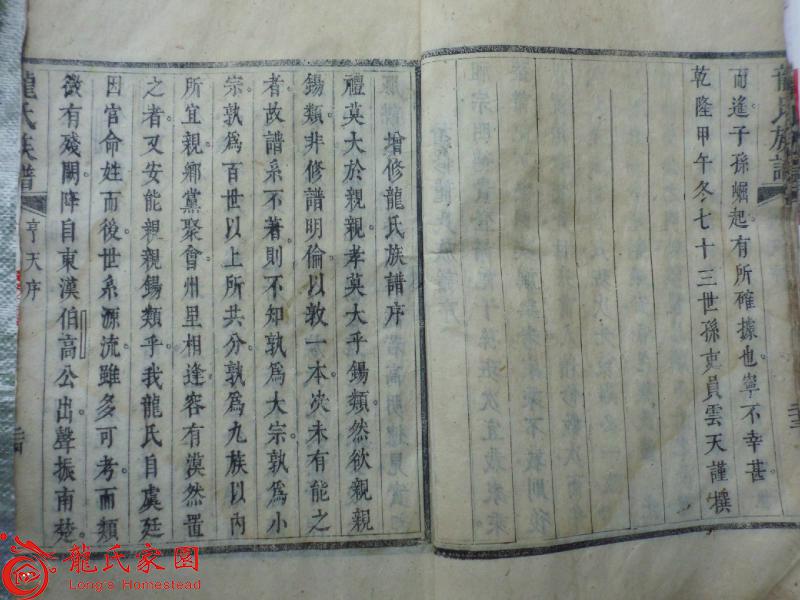 龍氏族譜
而遙子孫崛起有所確據也寧不幸甚
乾隆甲午冬七十三世孫吏員雲天謹撰
增修龍氏族譜序
禮莫大於親親孝莫大乎錫類然欲親親
錫類非修譜明倫以敦一本決未有能之
者故譜系不著則不知孰為大宗孰為小
宗孰為百世以上所共分孰為九族以內
所宜親鄉黨聚會州里相逢容有漠然置
之者又安能親親錫類乎我龍氏自虞廷
因官命姓而後世系源流雖多可考而類
微有殘闕降自東漢伯高公出聲振南楚
龍氏族譜
亨天序
龍氏家園
Long's Homestead